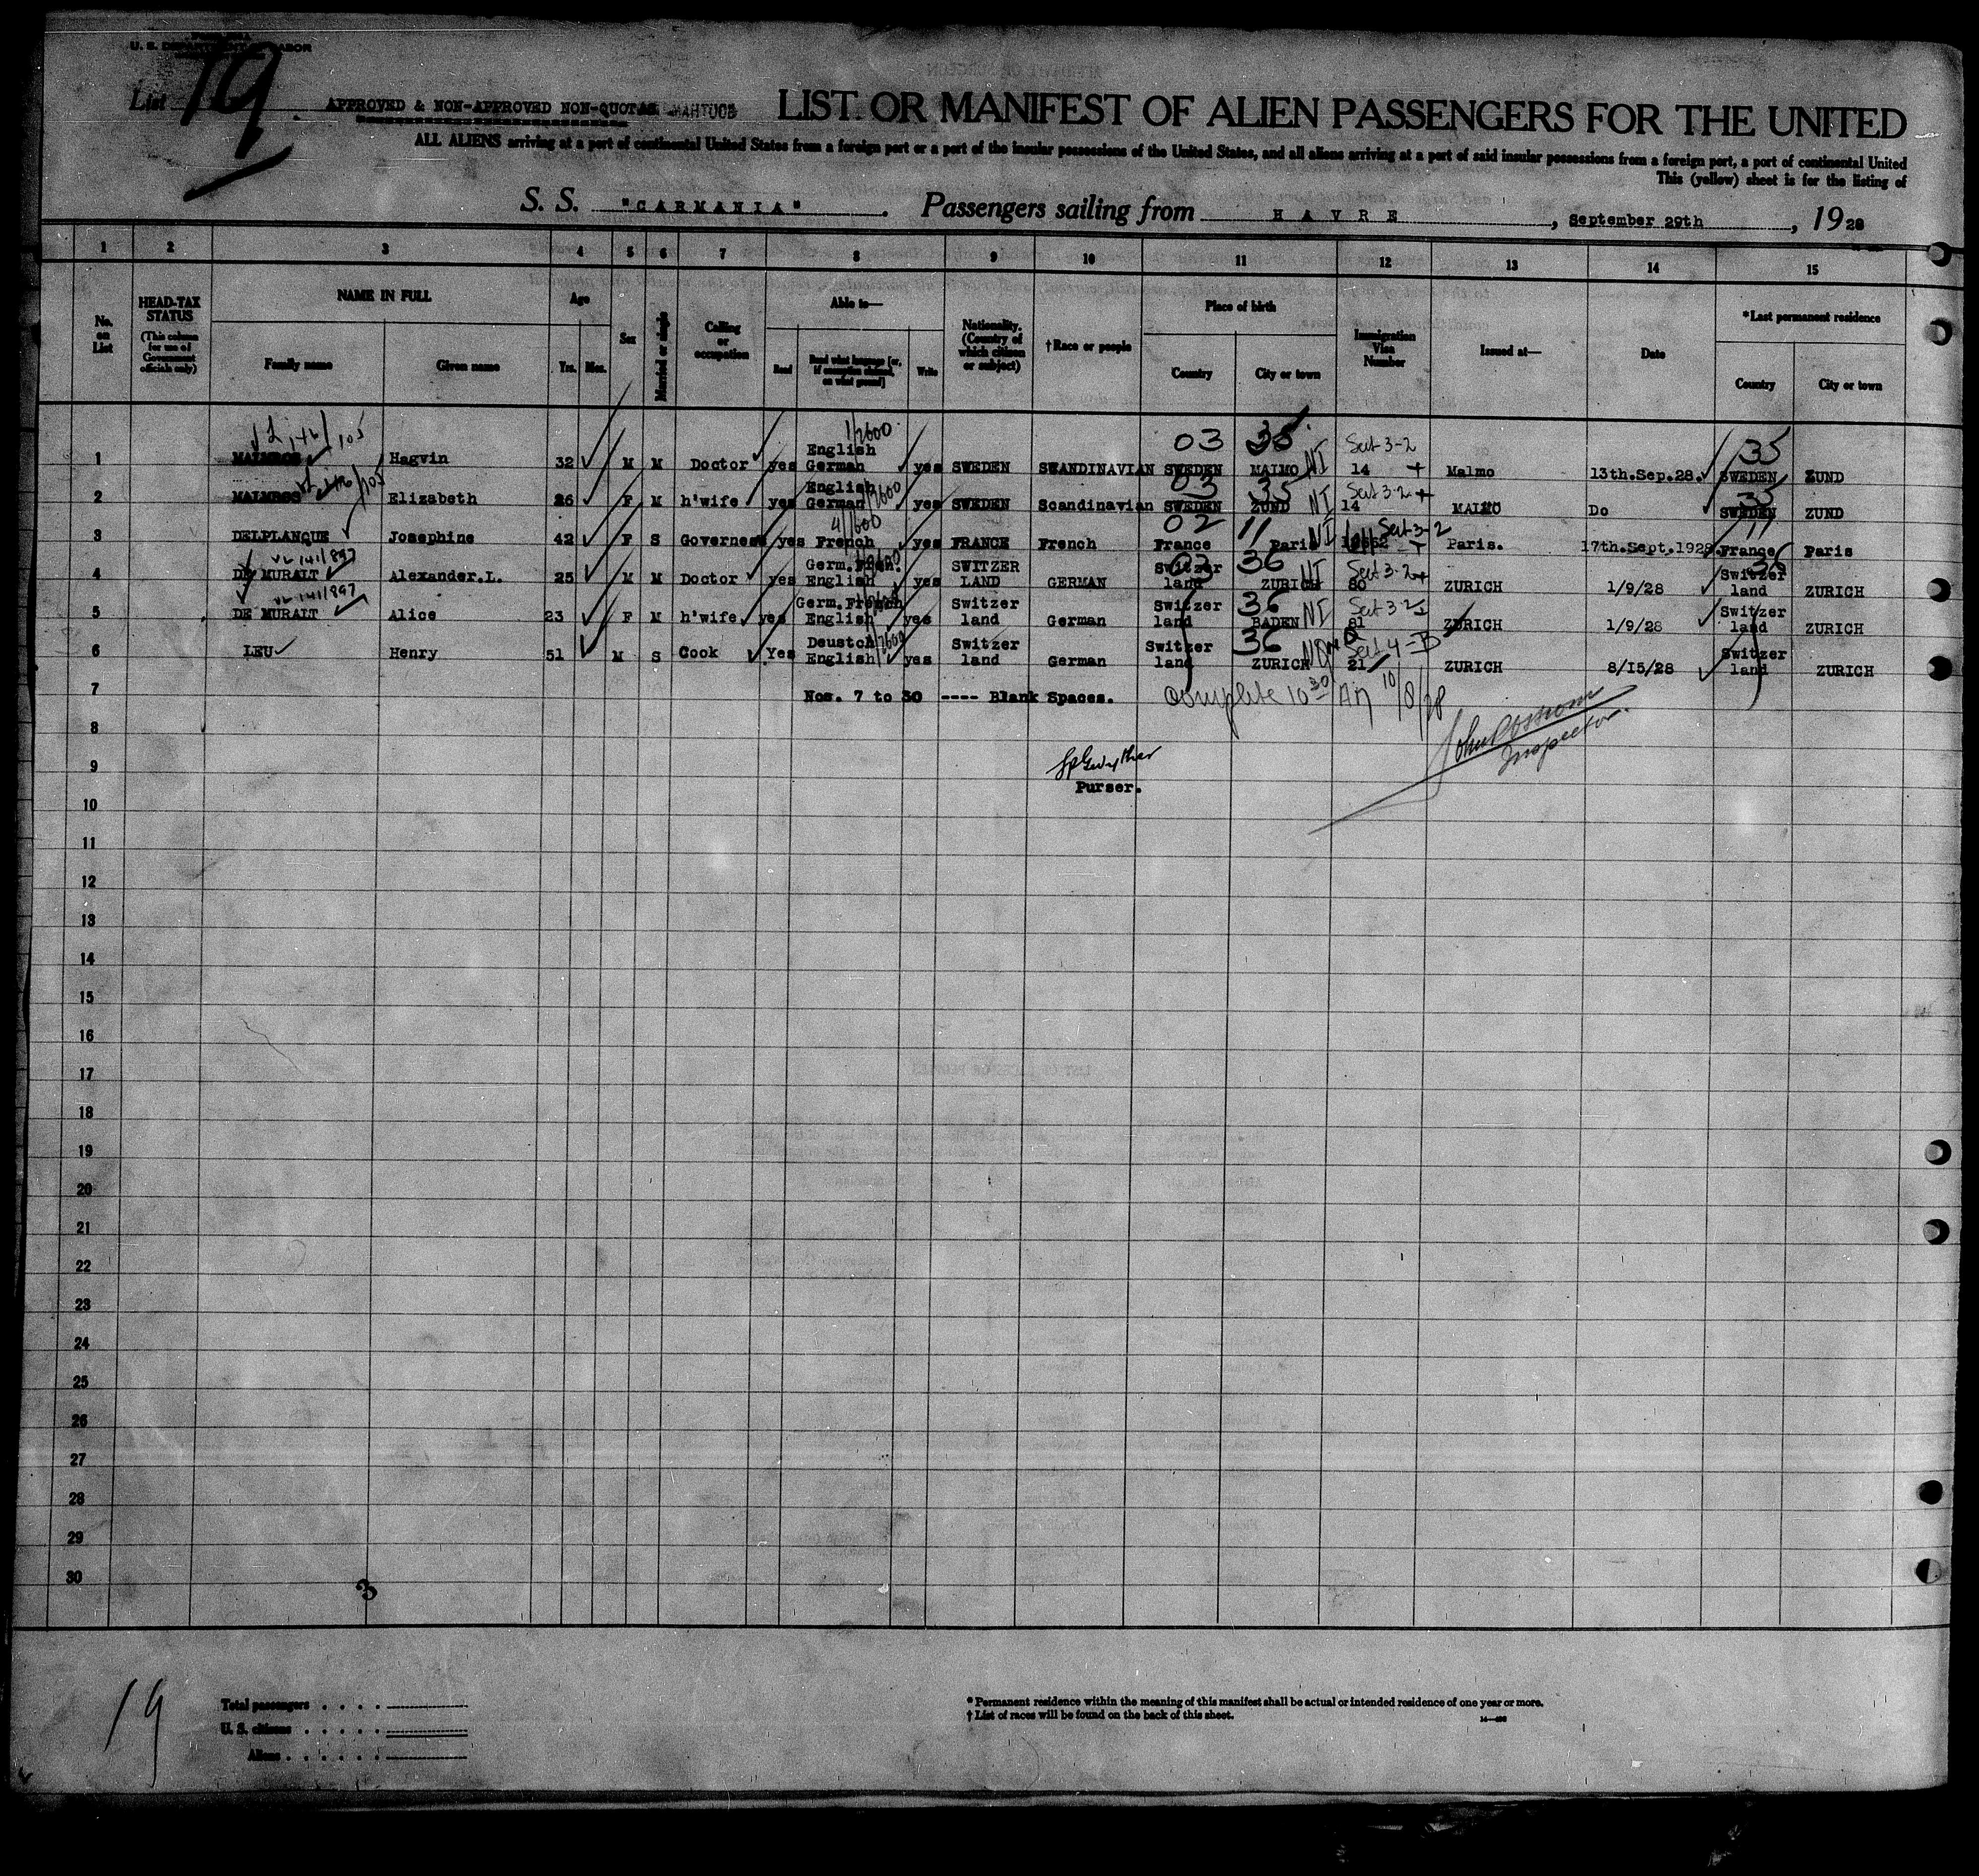 U. S. DEPARTMENT OF LABOR
List 19 APPROVED & NON-APPROVED NON-QUOTAS LIST OR MANIFEST OF ALIEN PASSENGERS FOR THE UNITED
ALL ALIENS arriving at a port of continental United States from a foreign port or a port of the insular possessions of the United States, and all aliens arriving at a port of said insular possessions from a foreign port, a port of continental United
This (yellow) sheet is for the listing of
S. S. "CARMANIA". Passengers sailing from HAVRE, September 29th, 1928
1 2 3 4 5 6 7 8 9 10 11 12 13 14 15
No. on List
HEAD-TAX STATUS (This column for use of Government officials only)
NAME IN FULL
Family name Given name
Age
Yrs. Mos.
Sex
Married or single
Calling or occupation
Able to—
Read Read what language [or, if exemption claimed, on what ground] Write
Nationality. (Country of which citizen or subject)
†Race or people
Place of birth
Country City or town
Immigration Visa Number
Issued at—
Date
*Last permanent residence
Country City or town
1/2600 03 35 Sect 3-2 35
1 MALMROS Hagvin 32 M M Doctor yes English German yes SWEDEN SWANDINAVIAN SWEDEN MALMO NI 14 Malmo 13th.Sep.28. SWEDEN ZUND
03 35 Sect 3-2 35
2 MALMROS Elizabeth 26 F M h'wife yes English German yes SWEDEN Scandinavian SWEDEN ZUND NI 14 MALMO Do SWEDEN ZUND
4/600 02 11 Sect 3-2 11
3 DELPLANQUE Josephine 42 F S Governess yes French yes FRANCE French France Paris NI Paris. 17th.Sept.1928. France Paris
VL 141/897 03 36 Sect 3-2 36
4 DE MURALT Alexander.L. 25 M M Doctor yes Germ.Fren. English yes SWITZER LAND GERMAN Switzer land ZURICH NI 80 ZURICH 1/9/28 Switzer land ZURICH
VL 141/897 36 Sect 3-2
5 DE MURALT Alice 23 F M h'wife yes Germ.French English yes Switzer land German Switzer land BADEN NI 81 ZURICH 1/9/28 Switzer land ZURICH
36 Sect 4-B
6 LEU Henry 51 M S Cook Yes Deustch English yes Switzer land German Switzer land ZURICH 21 ZURICH 8/15/28 Switzer land ZURICH
7 Nos. 7 to 30 ---- Blank Spaces. Complete 10 30 AM 10/8/28
8
Inspector.
9
Purser.
10
11
12
13
14
15
16
17
18
19
20
21
22
23
24
25
26
27
28
29
30
3
19
Total passengers . . . .
U. S. citizens . . . . .
Aliens . . . . . .
* Permanent residence within the meaning of this manifest shall be actual or intended residence of one year or more.
† List of races will be found on the back of this sheet.